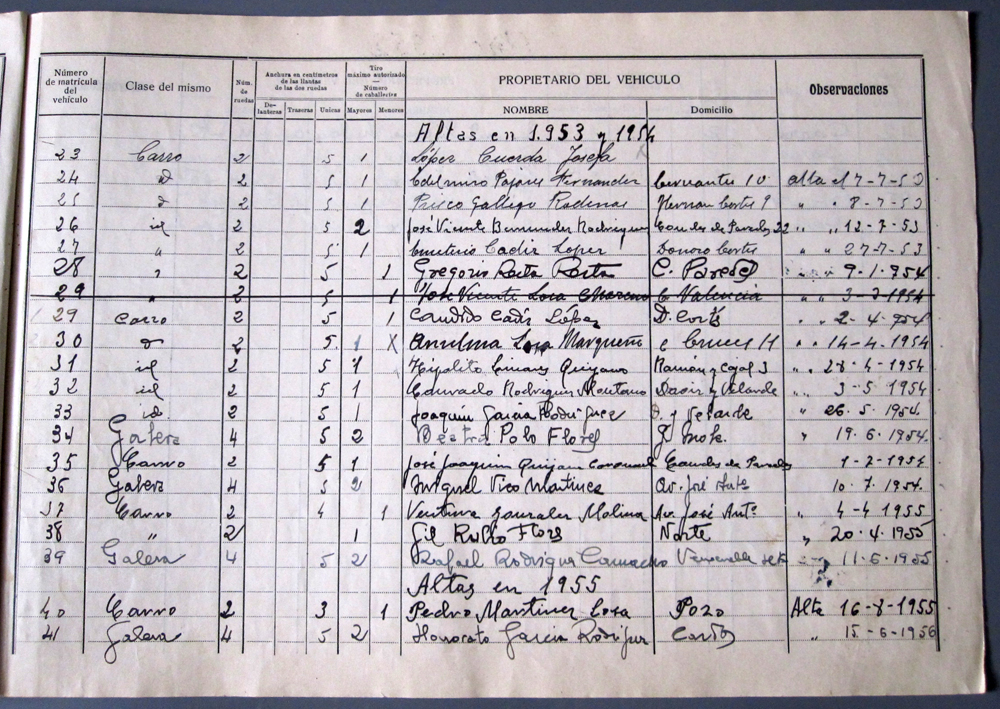 Número de matrícula del vehículo Clase del mismo Núm. de ruedas Anchura en centímetros de las llantas de las dos ruedas Tiro máximo autorizado — Número de caballerías PROPIETARIO DEL VEHICULO Observaciones
De-lanteras Traseras Unicas Mayores Menores NOMBRE Domicilio
Altas en 1.953 y 1954
23 Carro 2 5 1 López Cuerda Josefa
24 id 2 5 1 Edelmiro Pajares Fernandez Cervantes 10 alta el 7-7-53
25 id 2 5 1 Gallego Rodenas Hernan Cortes 9 " " 8-7-53
26 id 2 5 2 José Vicente Rodriguez Condes de Paredes 22 " " 12-7-53
27 " 2 5 1 Emeterio Cadiz Lopez Donoro Cortes " 27-7-53
28 " 2 5 1 Gregorio C. Paredes " " 9-1-954
29 " 2 5 1 José Vicente Losa C Valencia " " 3-3-1954
29 Carro 2 5 1 Candido Cadiz López D. Cortés " " 2-4-954
30 id 2 5 1 X Anselma Losa Marqueño c Cruces 11 " " 14-4-1954
31 id 2 5 1 Hipolito Linares Quijano Ramón y Cajal 3 " " 28-4-1954
32 id 2 5 1 Eduardo Rodriguez Montano Daoiz y Velarde " 3-5-1954
33 id. 2 5 1 Joaquín García Rodríguez D. y Velarde " 26.5.1954.
34 Galera 4 5 2 Polo Flores G. " 19.6.1954.
35 Carro 2 5 1 José Joaquin Quijano Coronado Condes de Paredes 1-7-1954
36 Galera 4 5 2 Miguel Vico Martinez Av. José Antº " 10.7.1954.
37 Carro 2 4 1 Ventura Gonzalez Molina Av. José Antº " 4-4-1955
38 " 2 1 Gil Rubio Flores Norte " 20.4.1955
39 Galera 4 5 2 Rafael Rodrigue Camacho " 11-6-1955
Altas en 1955
40 Carro 2 3 1 Pedro Martinez Losa Pozo Alta 16-8-1955
41 Galera 4 5 2 Honorato Garcia Rodrigue " 15-6-1956